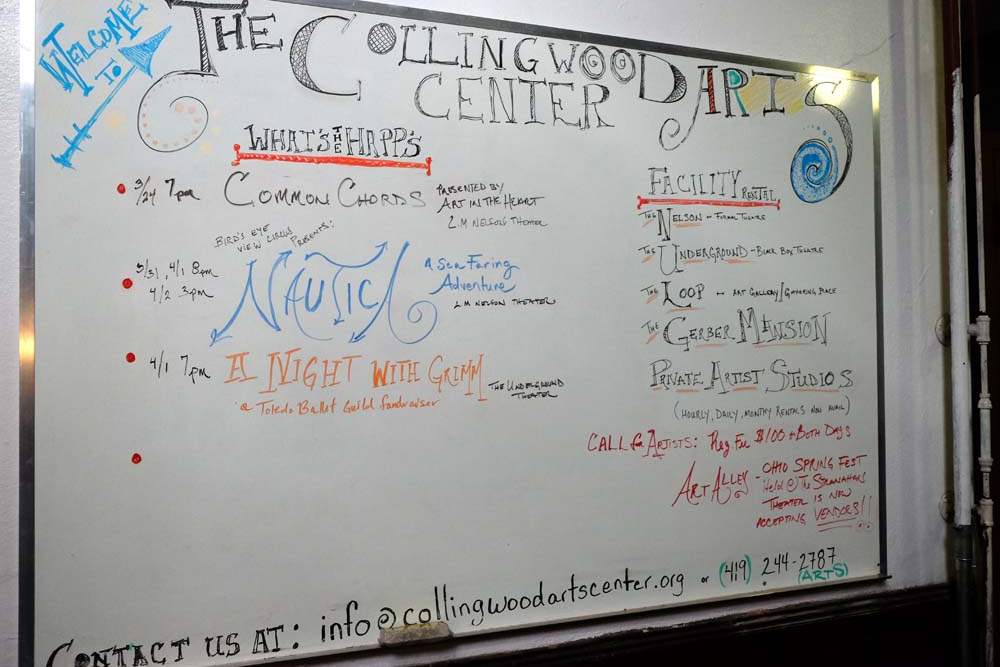 WELCOME
TO
THE COLLINGWOOD ARTS
CENTER
WHAT'S THE HAPP'S
3/24 7pm COMMON CHORDS PRESENTED BY
ART IN THE HEIGHT
L.M NELSON THEATER
BIRD'S EYE
VIEW CIRCUS PRESENTS:
3/31, 4/1 8pm
4/2 3pm
NAUTICA
A Sea Faring
Adventure
L M NELSON THEATER
4/1 7pm A NIGHT WITH GRIMM THE UNDERGROUND
THEATER
a Toledo Ballet Guild fundraiser
FACILITY RENTAL
THE NELSON - FORMAL THEATRE
THE UNDERGROUND - BLACK BOX THEATRE
THE LOOP - ART GALLERY/GATHERING PLACE
THE GERBER MANSION
PRIVATE ARTIST STUDIOS
(HOURLY, DAILY, MONTHLY RENTALS NOW AVAIL)
CALL for ARTISTS: Reg Fee $100 BOTH DAYS
ART ALLEY - OHIO SPRING FEST
Held @ The STRANAHAN
THEATER IS NOW
ACCEPTING VENDORS!!
CONTACT US AT: info@collingwoodartscenter.org or (419) 244-2787
(ARTS)